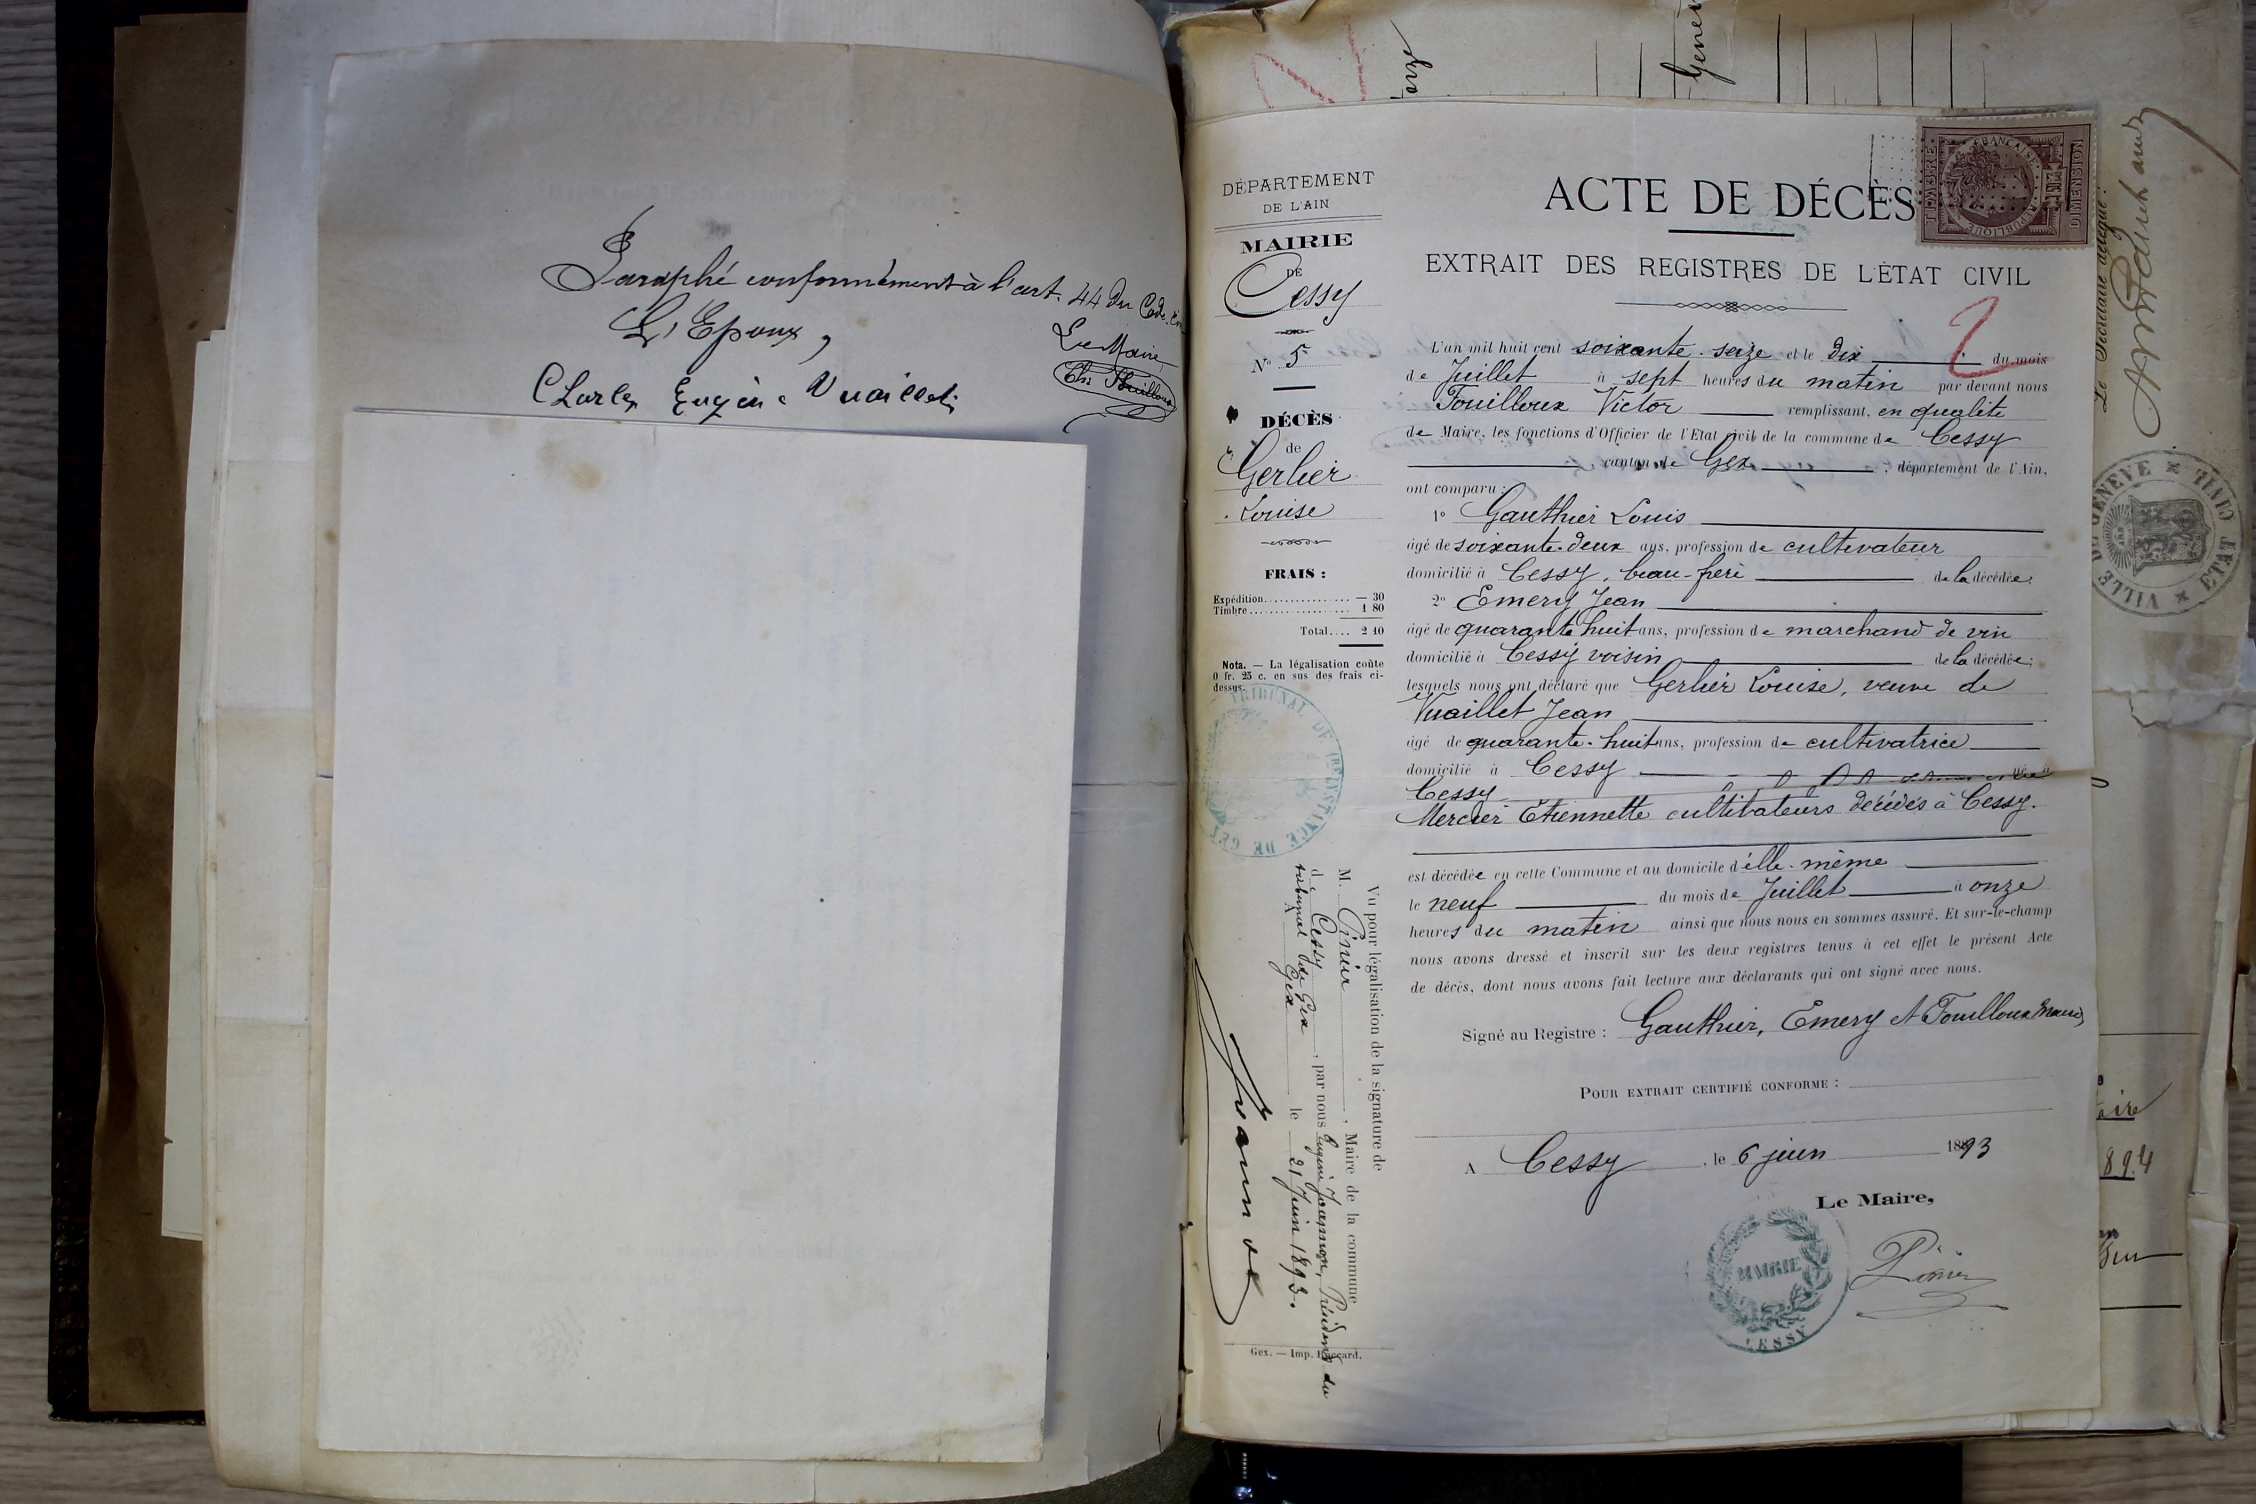 Paraphé conformément à l'art. 44 du Code
L'Epoux,
Le Maire
Charles Eugène Vuaillet
DÉPARTEMENT
DE L'AIN
MAIRIE
DE
Cessy
N° 5
DÉCÈS
de
Gerlier
Louise
FRAIS :
Expédition............... — 30
Timbre.................... 1 80
Total.... 2 10
Nota. — La légalisation coûte
0 fr. 25 c. en sus des frais ci-
dessus.
TRIBUNAL DE 1ERE INSTANCE DE GEX
Vu pour légalisation de la signature de
M. Pinier, Maire de la commune
de Cessy, par nous Eugène Joannon, Président du
tribunal de Gex
A Gex le 21 Juin 1893.
Gex. — Imp. Baccard.
ACTE DE DÉCÈS
EXTRAIT DES REGISTRES DE L'ÉTAT CIVIL
2
L'an mil huit cent soixante-seize et le dix du mois
de Juillet à sept heures du matin par devant nous
Fouilloux Victor remplissant, en qualité
de Maire, les fonctions d'Officier de l'Etat civil de la commune de Cessy
canton de Gex, département de l'Ain,
ont comparu :
1° Gauthier Louis
âgé de soixante-deux ans, profession de cultivateur
domicilié à Cessy, beau-frère de la décédée;
2° Emery Jean
âgé de quarante huit ans, profession de marchand de vin
domicilié à Cessy voisin de la décédée;
lesquels nous ont déclaré que Gerlier Louise, veuve de
Vuaillet Jean
âgé de quarante-huit ans, profession de cultivatrice
domicilié à Cessy
Cessy
Mercier Etiennette cultivateurs décédés à Cessy.
est décédée en cette Commune et au domicile d'elle-même
le neuf du mois de Juillet à onze
heures du matin ainsi que nous nous en sommes assuré. Et sur-le-champ
nous avons dressé et inscrit sur les deux registres tenus à cet effet le présent Acte
de décès, dont nous avons fait lecture aux déclarants qui ont signé avec nous.
Signé au Registre : Gauthier, Emery et Fouilloux maire
POUR EXTRAIT CERTIFIÉ CONFORME :
A Cessy, le 6 juin 1893
Le Maire,
MAIRIE
CESSY
Pinier
DIMENSION
Le Secrétaire délégué :
VILLE DE GENÈVE
ETAT CIVIL